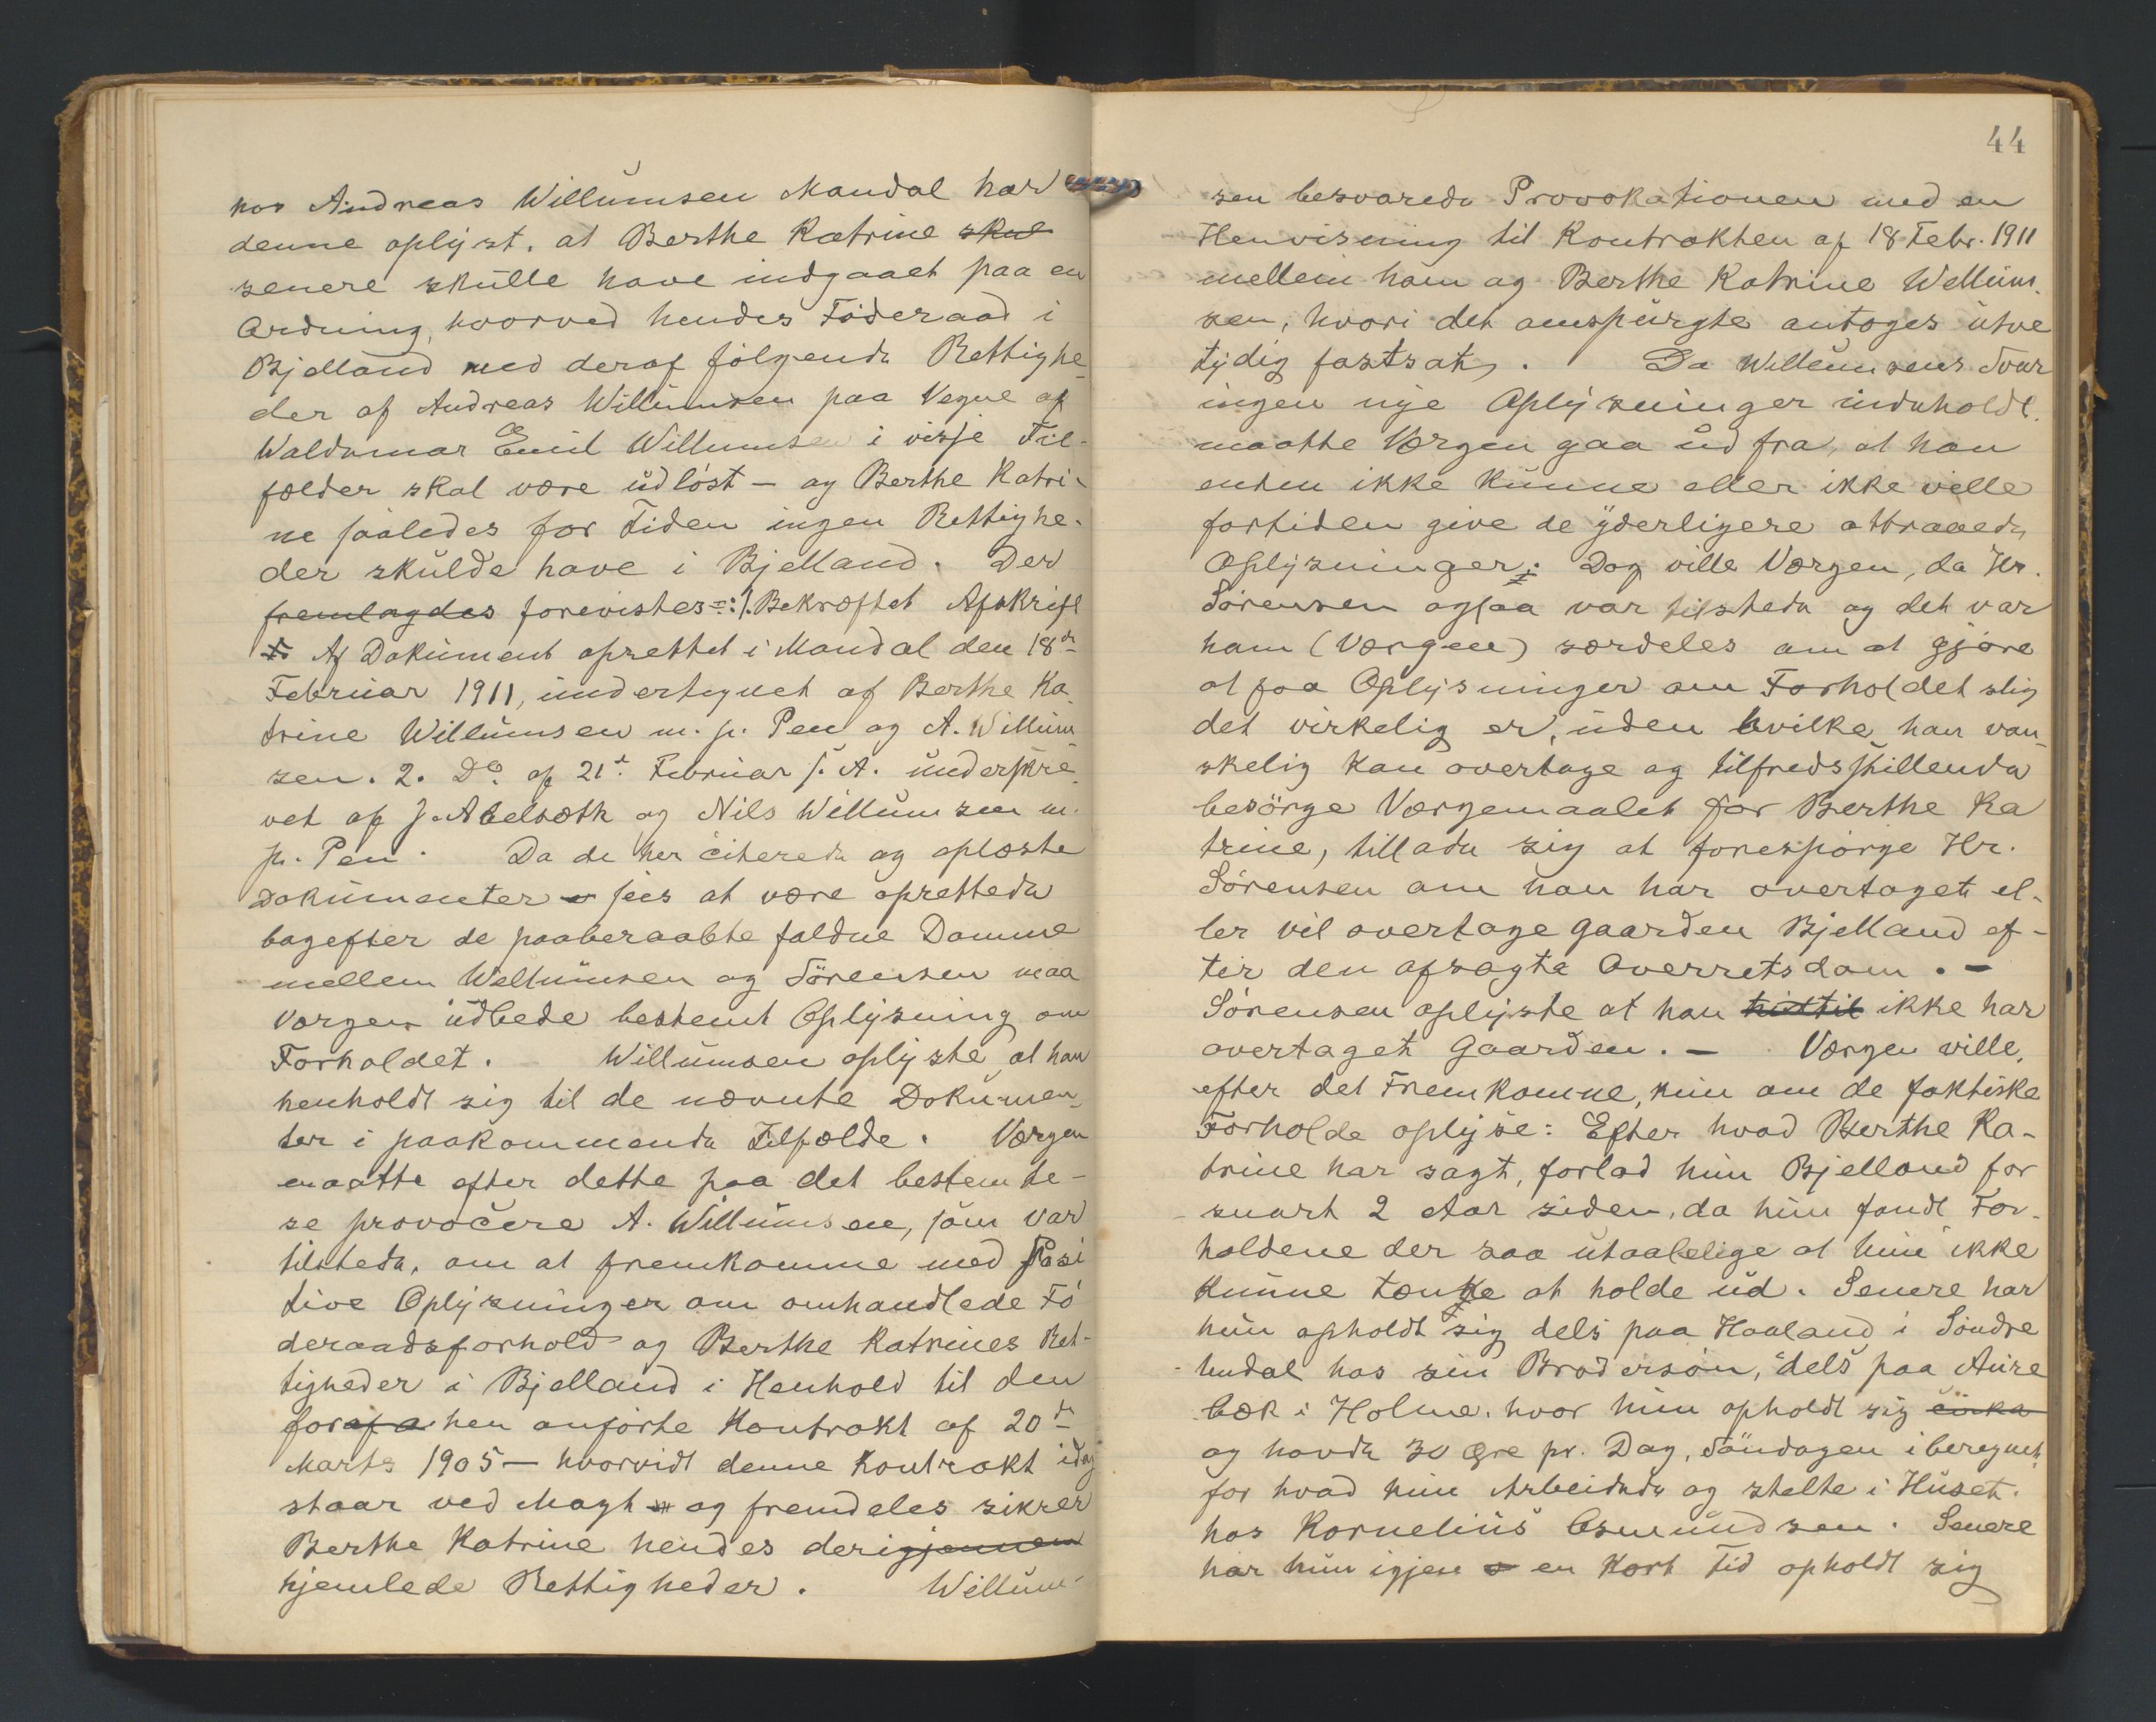 hos Andreas Willumsen Mandal har
denne oplyst, at Berthe Katrine skul
senere skulle have indgaaet paa en
Ordning, hvorved hendes Föderaad i
Bjelland med deraf fölgende Rettighe-
der af Andreas Willumsen paa Vegne af
Waldemar Emil Willumsen i visse Til-
fælder skal være udlöst – og Berthe Katri-
ne saaledes for Tiden ingen Rettighe-
der skulde have i Bjelland. Der
fremlagdes forevistes =: 1. Bekræftet Afskrift
Af Dokument oprettet i Mandal den 18de
Februar 1911, undertegnet af Berthe Ka
trine Willumsen m. p. Pen og A. Willum
sen. 2. Do. af 21de Februar s. A. underskre
vet af J. Abelsæth og Nils Willumsen m.
p. Pen. Da de her citerede og oplæste
Dokumenter sees at være oprettede
bagefter de paaberaabte faldne Domme
mellem Willumsen og Sörensen maa
Værgen udbede bestemt Oplysning om
Forholdet. – Willumsen oplyste, at han
henholdt sig til de nævnte Dokumen-
ter i paakommende Tilfælde. Værgen
maatte efter dette paa det bestemte-
se provocere A. Willumsen, som var
tilstede, om at fremkomme med Posi
tive Oplysninger om omhandlede Fö
deraadsforhold og Berthe Katrines Ret-
tigheder i Bjelland i Henhold til den
foraf a hen anförte Kontrakt af 20de
Marts 1905 – hvorvidt denne Kontrakt idag
staar ved Magt og fremdeles sikrer
Berthe Katrine hendes derigjennem
hjemlede Rettigheder. Willum-
44
sen besvarede Provokationen med en
Henvisning til Kontrakten af 18 Febr. 1911
mellem ham og Berthe Katrine Willum-
sen, hvori det omspurgte antoges utve
tydig fastsat. Da Willumsens Svar
ingen nye Oplysninger indeholdt,
maatte Værgen gaa ud fra, at han
enten ikke kunne eller ikke ville
fortiden give de yderligere attraaede
Oplysninger; Dog ville Værgen, da Hr.
Sörensen ogsaa var tilstede og det var
ham (Værgen) særdeles om at gjöre
at faa Oplysninger om Forholdet slig
det virkelig er, uden hvilke han van-
skelig kan overtage og tilfredsstillende
besörge Værgemaalet for Berthe Ka
trine, tillade sig at forespörge Hr.
Sörensen om han har overtaget el-
ler vil overtage Gaarden Bjelland ef-
ter den afsagte Overretsdom. –
Sörensen oplyste at han hidtil ikke har
overtaget Gaarden. – Værgen ville,
efter det Fremkomne, kun om de faktiske
Forholde oplyse: Efter hvad Berthe Ka-
trine har sagt, forlod hun Bjelland for
snart 2 Aar siden, da hun fandt For-
holdene der saa utaalelige at hun ikke
kunne tænke at holde ud. Senere har
hun opholdt sig dels paa Haaland i Söndre
hos sin Brodersön, dels paa Aure
bæk i Holme, hvor hun opholdt sig cirka
og havde 30 Öre pr. Dag, Söndagen iberegnet,
for hvad hun Arbeidede og stelte i Huset
hos Kornelius Osmundsen. Senere
har hun igjen en kort Tid opholdt sig